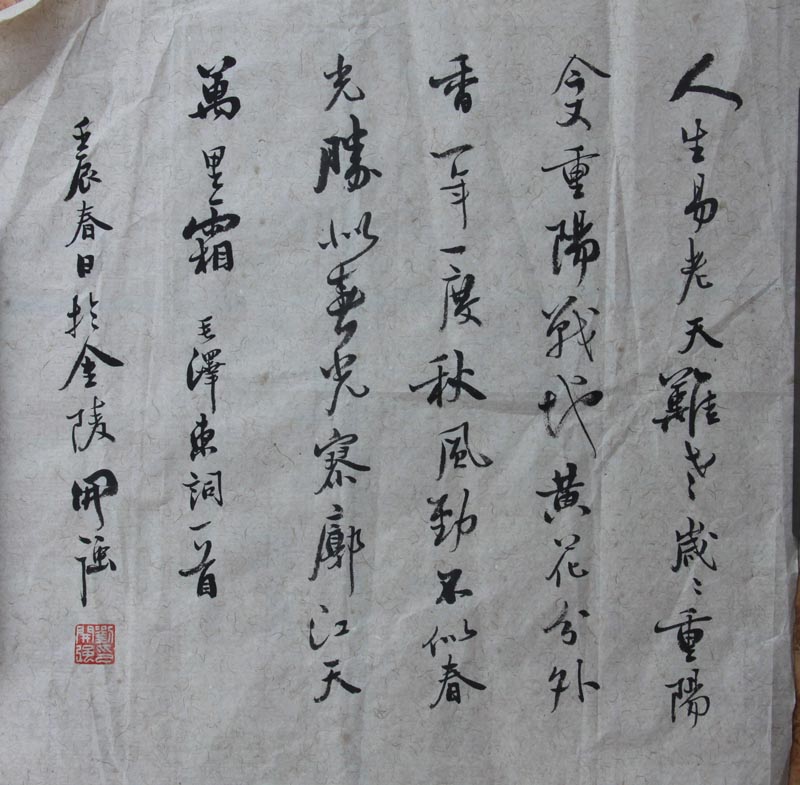 人生易老天難老歲〻重陽
今又重陽戰地黃花分外
香一年一度秋風勁不似春
光勝似春光寥廓江天
萬里霜 毛澤東詞一首
壬辰春日於金陵 開強
劉開強印